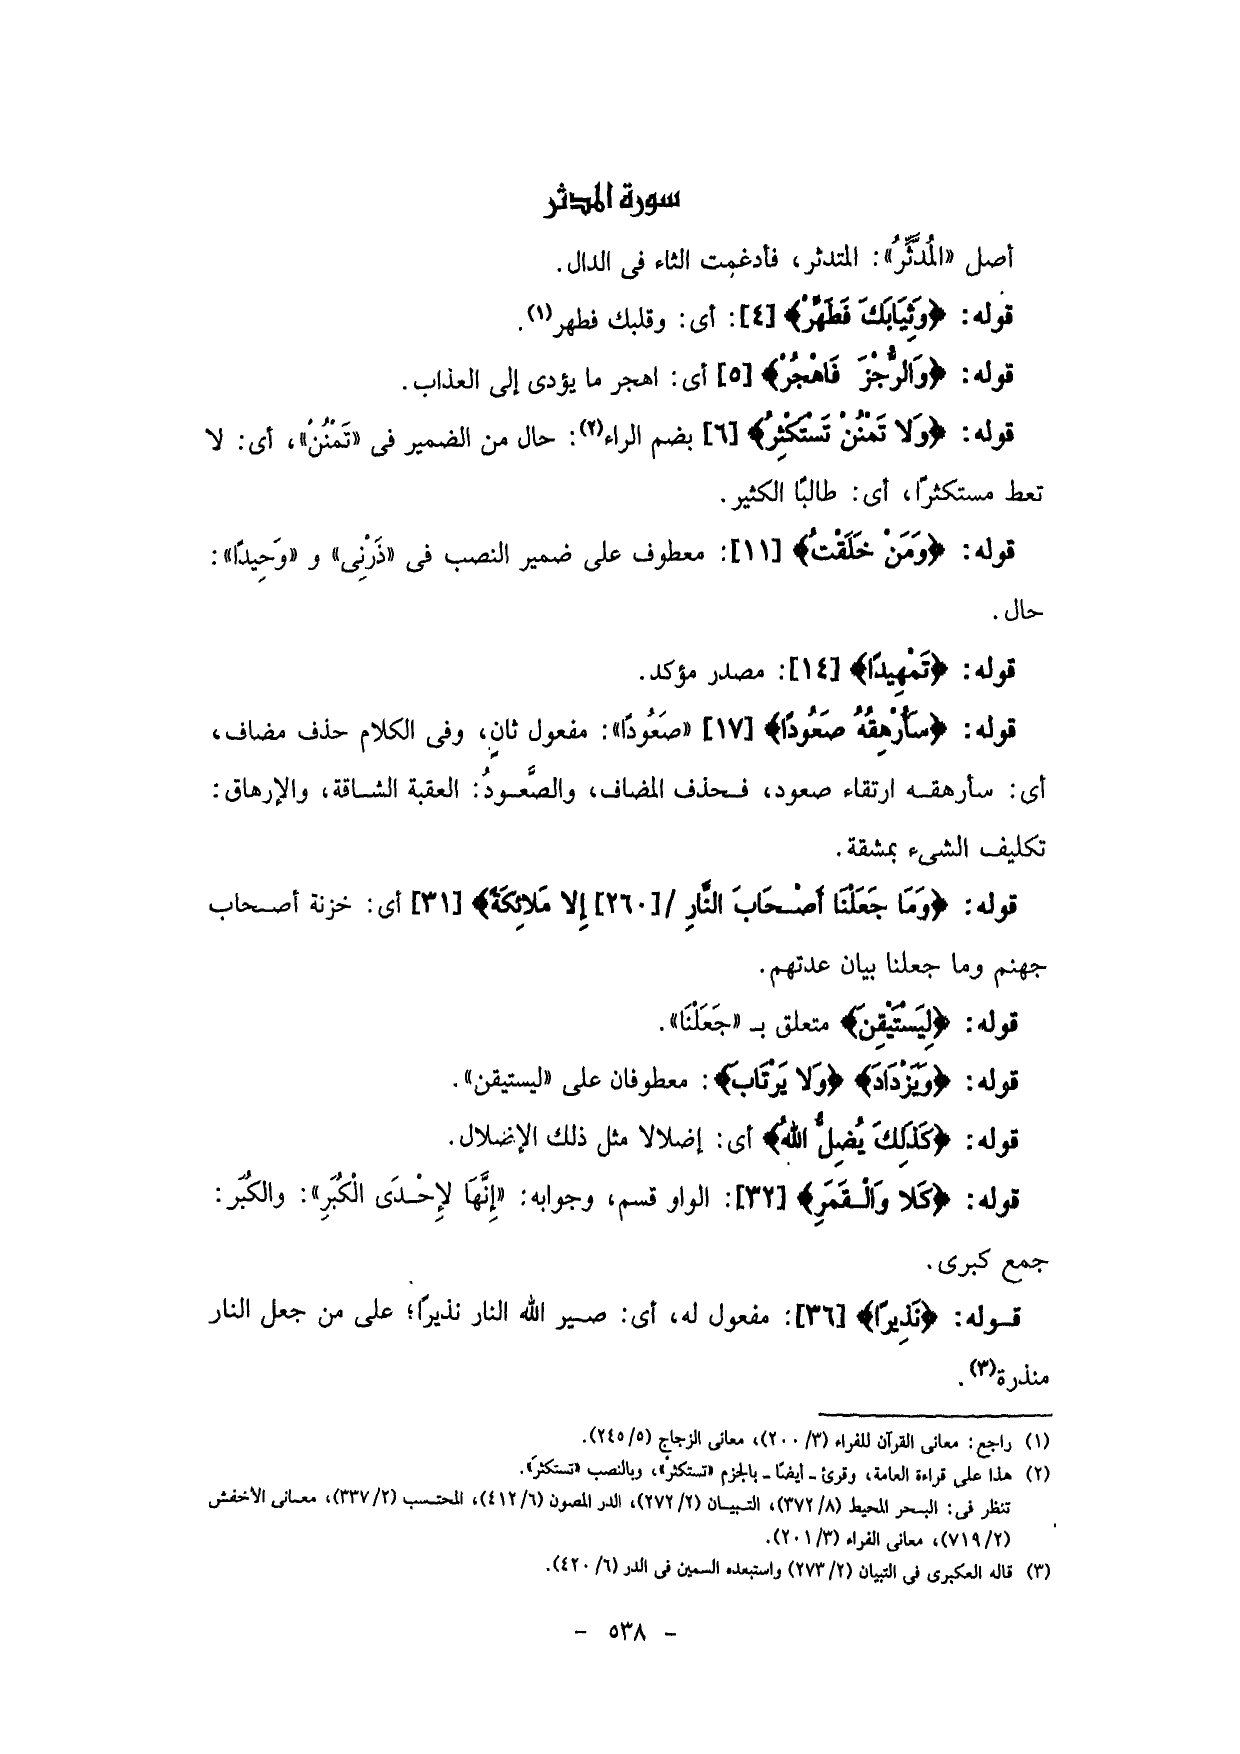 سورة المدثر
أصل «الْمُدَّثِّرُ»: المتدثر، فأدغمت الثاء فى الدال.
قوله: ﴿وَثِيَابَكَ فَطَهِّرْ﴾ [٤]: أى: وقلبك فطهر(١).
قوله: ﴿وَالرُّجْزَ فَاهْجُرْ﴾ [٥] أى: اهجر ما يؤدى إلى العذاب.
قوله: ﴿وَلَا تَمْنُنْ تَسْتَكْثِرُ﴾ [٦] بضم الراء(٢): حال من الضمير فى «تَمْنُنْ»، أى: لا
تعط مستكثرًا، أى: طالبًا الكثير.
قوله: ﴿وَمَنْ خَلَقْتُ﴾ [١١]: معطوف على ضمير النصب فى «ذَرْنِى» و «وَحِيدًا»:
حال.
قوله: ﴿تَمْهِيدًا﴾ [١٤]: مصدر مؤكد.
قوله: ﴿سَأُرْهِقُهُ صَعُودًا﴾ [١٧] «صَعُودًا»: مفعول ثانٍ، وفى الكلام حذف مضاف،
أى: سأرهقه ارتقاء صعود، فحذف المضاف، والصَّعودُ: العقبة الشاقة، والإرهاق:
تكليف الشىء بمشقة.
قوله: ﴿وَمَا جَعَلْنَا أَصْحَابَ النَّارِ /[٢٦٠] إِلا مَلائِكَةً﴾ [٣١] أى: خزنة أصحاب
جهنم وما جعلنا بيان عدتهم.
قوله: ﴿لِيَسْتَيْقِنَ﴾ متعلق بـ «جَعَلْنَا».
قوله: ﴿وَيَزْدَادَ﴾ ﴿وَلا يَرْتَابَ﴾: معطوفان على «ليستيقن».
قوله: ﴿كَذَلِكَ يُضِلُّ اللهُ﴾ أى: إضلالا مثل ذلك الإضلال.
قوله: ﴿كَلا وَالْقَمَرِ﴾ [٣٢]: الواو قسم، وجوابه: «إِنَّهَا لإِحْدَى الْكُبَرِ»: والكُبَر:
جمع كبرى.
قوله: ﴿نَذِيرًا﴾ [٣٦]: مفعول له، أى: صير الله النار نذيرًا؛ على من جعل النار
منذرة(٣).
(١) راجع: معانى القرآن للفراء (٣/ ٢٠٠)، معانى الزجاج (٥/ ٢٤٥).
(٢) هذا على قراءة العامة، وقرئ ـ أيضًا ـ بالجزم «تستكثرْ»، وبالنصب «تستكثرَ».
تنظر فى: البحر المحيط (٨/ ٣٧٢)، التبيان (٢/ ٢٧٢)، الدر المصون (٦/ ٤١٢)، المحتسب (٢/ ٣٣٧)، معانى الأخفش
(٢/ ٧١٩)، معانى الفراء (٣/ ٢٠١).
(٣) قاله العكبرى فى التبيان (٢/ ٢٧٣) واستبعده السمين فى الدر (٦/ ٤٢٠).
- ٥٣٨ -